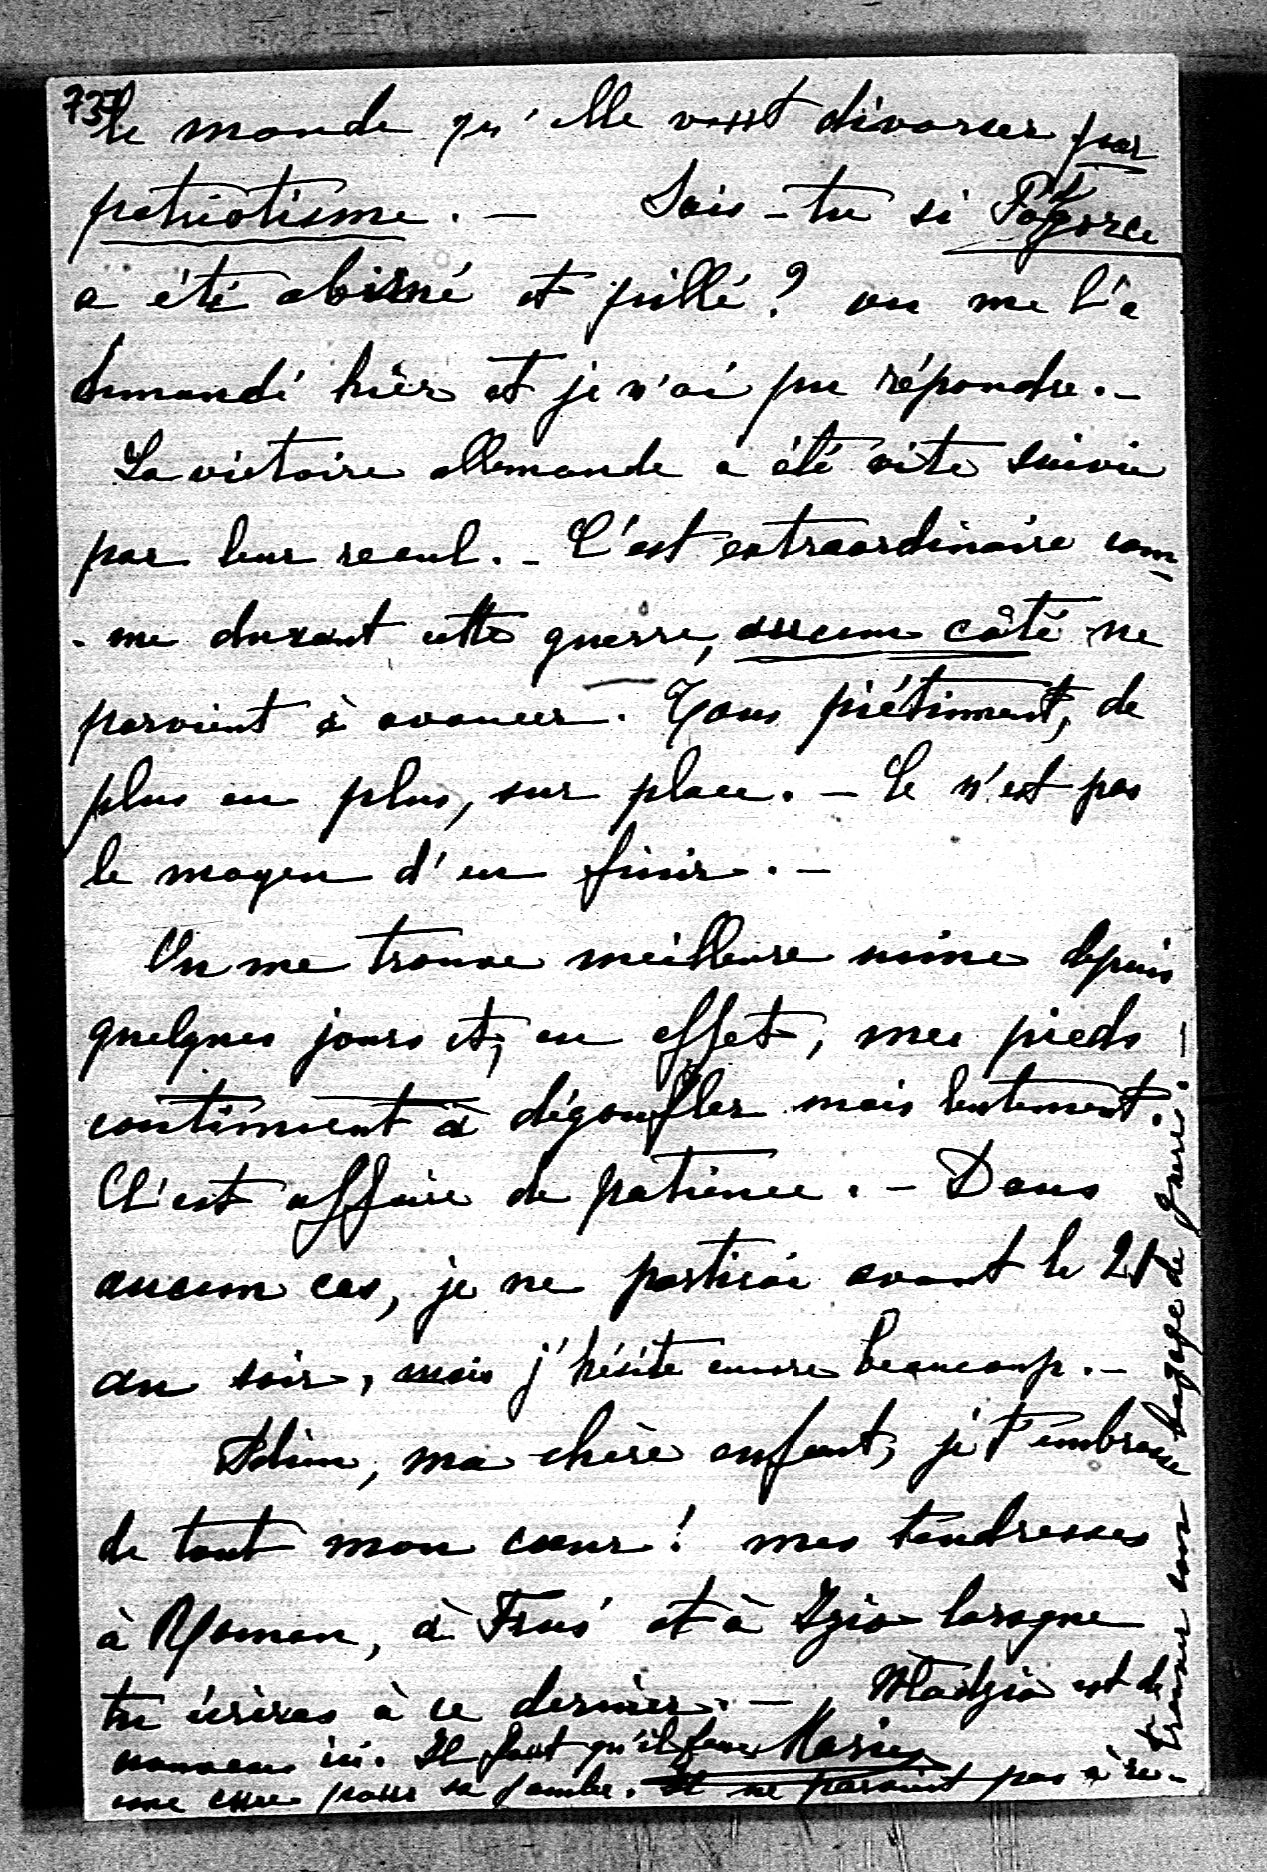 737
le monde qu'elle veut divorcer par
patriotisme. — Sais-tu si
a été abîmé et pillé? on me l'a
demandé hier et je n'ai pu répondre. –
La victoire allemande a été vite suivie
par leur recul. – C'est extraordinaire com-
-me durant cette guerre, aucun côté ne
parvient à avancer. Tous piétinent, de
plus en plus, sur place. – Ce n'est pas
le moyen d'en finir. –
On me trouve meilleure mine depuis
quelques jours et, en effet, mes pieds
continuent à dégonfler mais lentement.
C'est affaire de patience. – Dans
aucun cas, je ne partirai avant le 21
au soir, mais j'hésite encore beaucoup. –
Adieu, ma chère enfant, je t'embrasse
de tout mon cœur! mes tendresses
à Roman, à et à lorsque
tu écriras à ce dernier. – Władzio est de
nouveau ici. Il faut qu'il fasse Marie
une cure pour sa jambe. Il ne parvient pas à re-
trouver son bagage de guerre. –